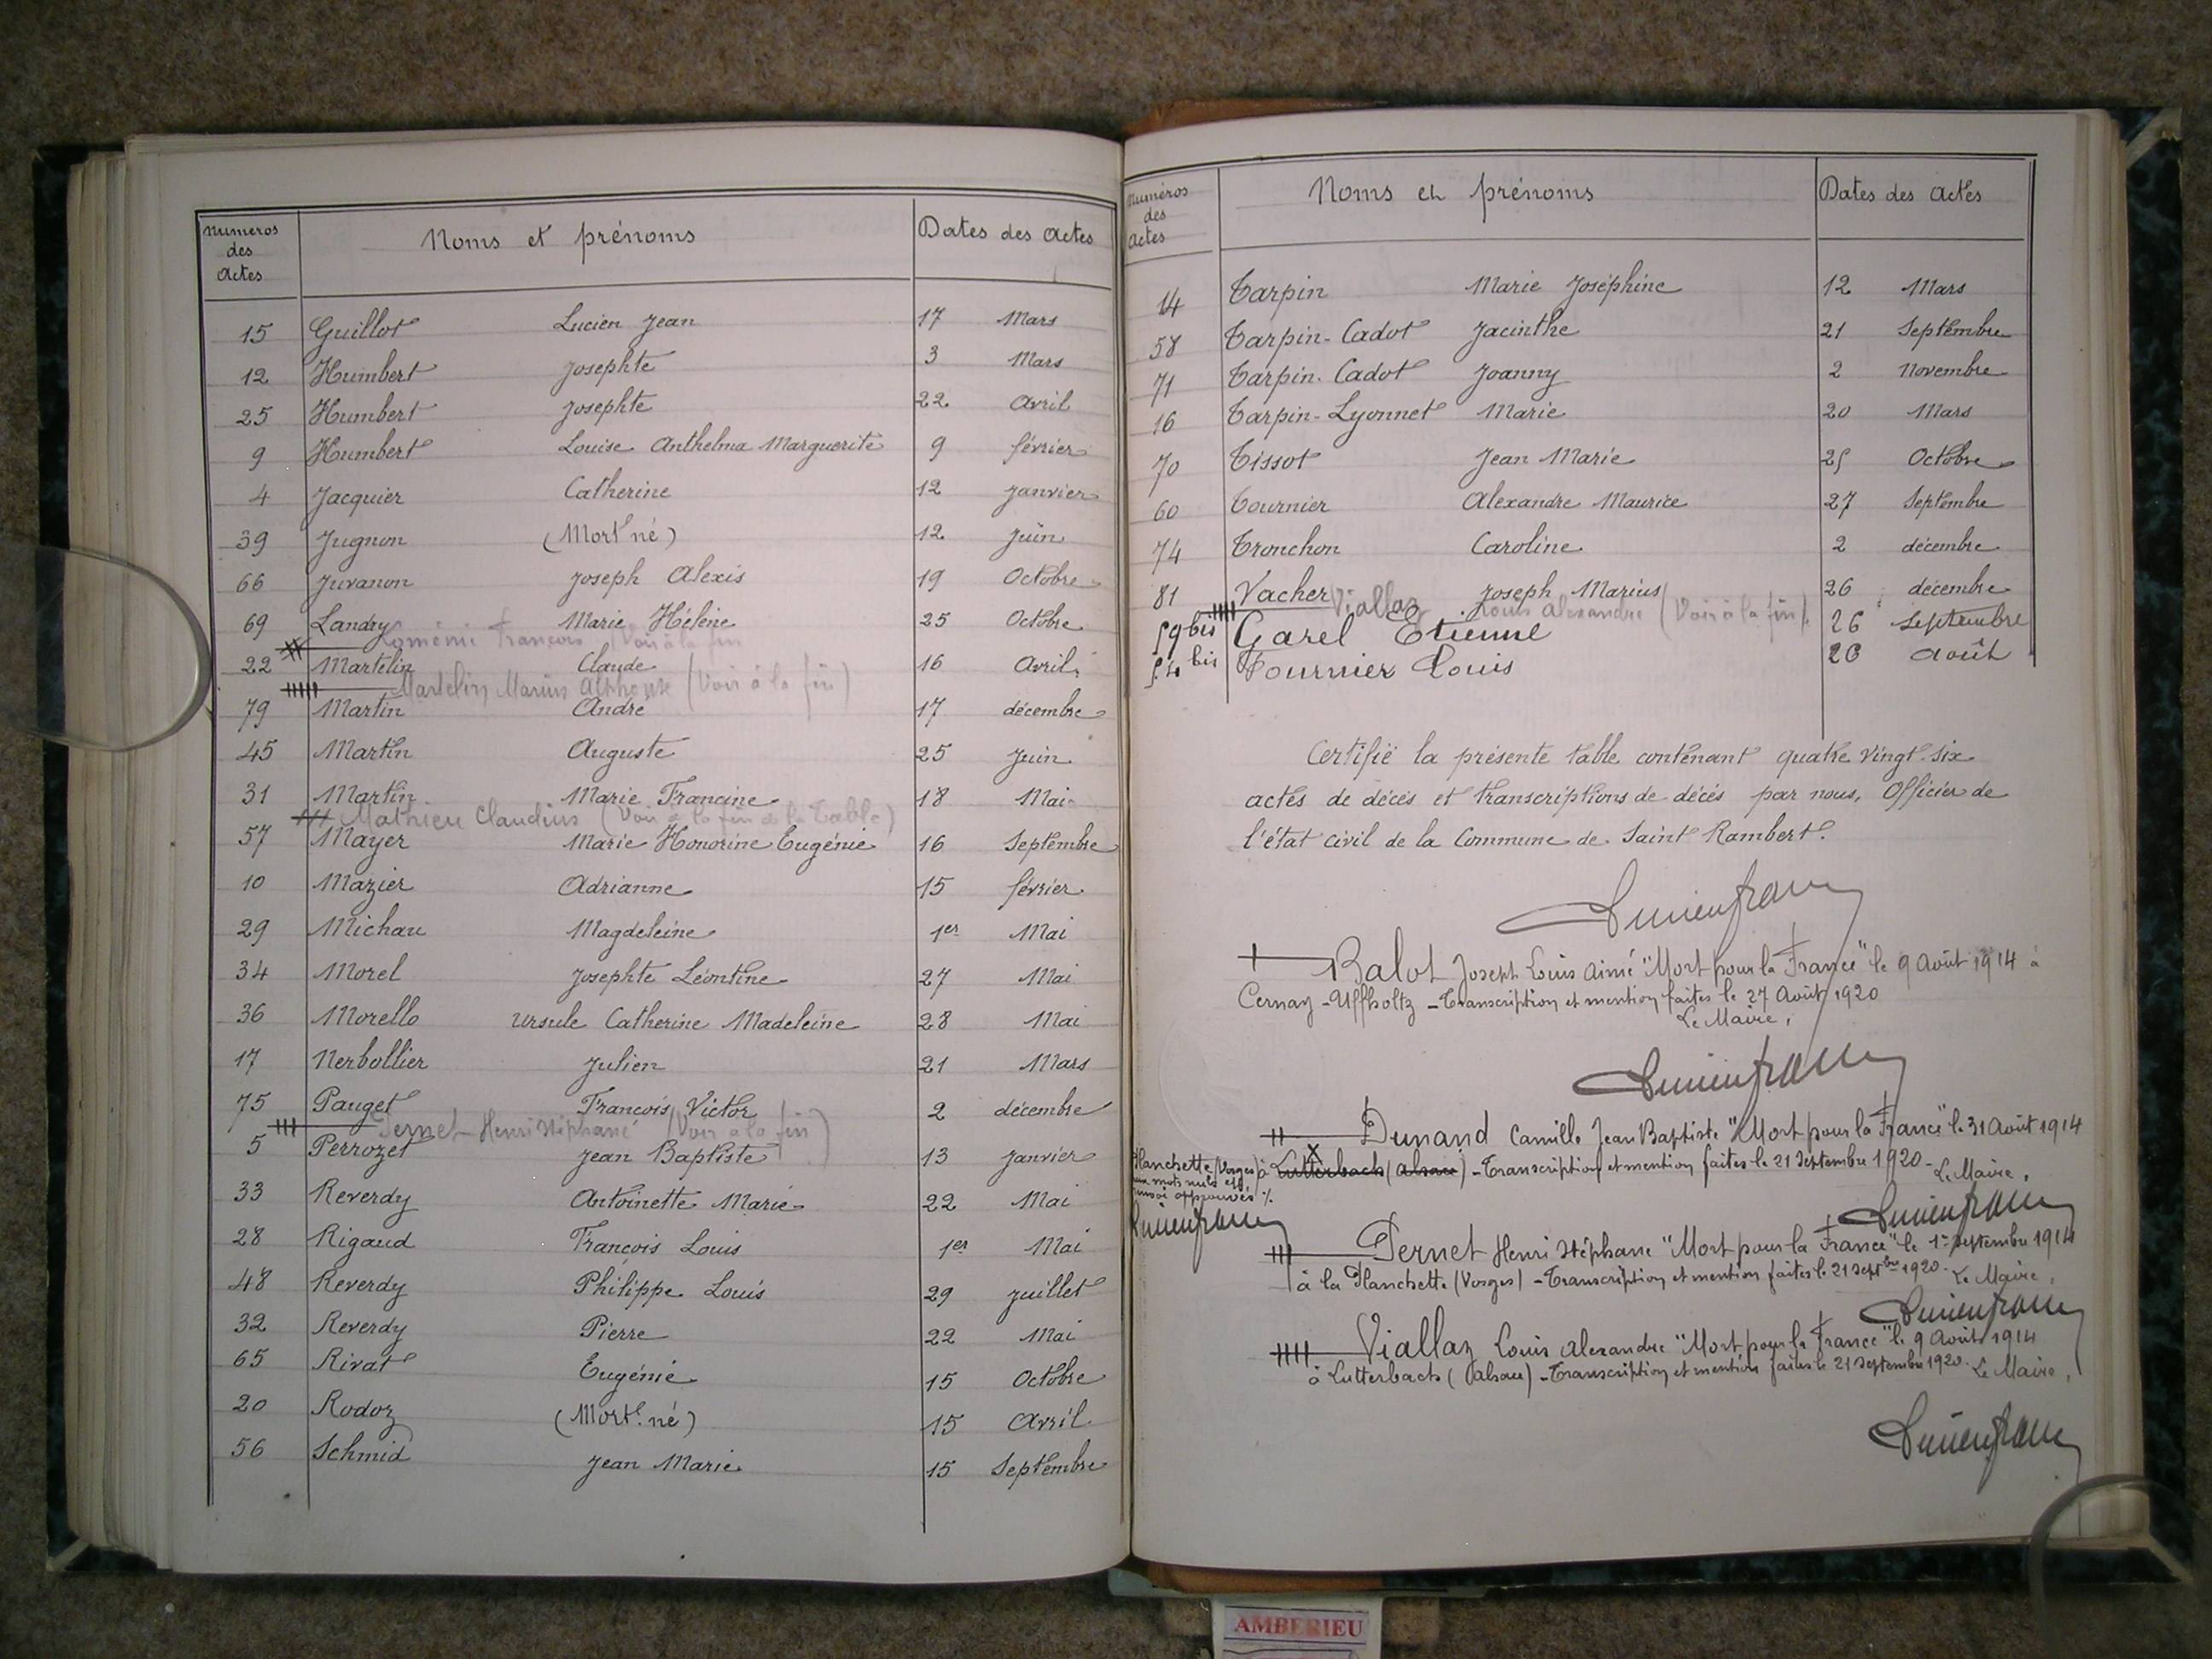 Numéros des Actes Noms et prénoms Dates des Actes
15 Guillot Lucien Jean 17 Mars
12 Humbert Josephte 3 Mars
25 Humbert Josephte 22 Avril
9 Humbert Louise Anthelma Marguerite 9 février
4 Jacquier Catherine 12 janvier
39 Jugnon (Mort né) 12 juin
66 Juvanon Joseph Alexis 19 Octobre
69 Landry Marie Hélène 25 Octobre
François Voir à la fin
22 Martelin Claude 16 Avril
Martelin Marius Alphonse (Voir à la fin)
79 Martin André 17 décembre
45 Martin Auguste 25 Juin
31 Martin Marie Francine 18 Mai
Mathieu Claudius (Voir à la fin de la Table)
57 Mayer Marie Honorine Eugénie 16 Septembre
10 Mazier Adrianne 15 février
29 Michau Magdeleine 1er Mai
34 Morel Josephte Léontine 27 Mai
36 Morello Ursule Catherine Madeleine 28 Mai
17 Nerbollier Julien 21 Mars
75 Pauget François Victor 2 décembre
Pernet Henri Stéphane (Voir à la fin)
5 Perrozet Jean Baptiste 13 janvier
33 Reverdy Antoinette Marie 22 Mai
28 Rigaud François Louis 1er Mai
48 Reverdy Philippe Louis 29 juillet
32 Reverdy Pierre 22 Mai
65 Rivat Eugénie 15 Octobre
20 Rodoz (Mort né) 15 Avril
56 Schmid Jean Marie 15 Septembre
Numéros des Actes Noms et prénoms Dates des Actes
14 Tarpin Marie Joséphine 12 Mars
58 Tarpin-Cadot Jacinthe 21 Septembre
71 Tarpin-Cadot Joanny 2 Novembre
16 Tarpin-Lyonnet Marie 20 Mars
70 Tissot Jean Marie 25 Octobre
60 Tournier Alexandre Maurice 27 Septembre
74 Tronchon Caroline 2 décembre
81 Vacher Joseph Marius 26 décembre
Viallaz Louis Alexandre (Voir à la fin)
59 bis Garel Etienne 26 Septembre
54 bis Fournier Louis 26 août
Certifié la présente table contenant quatre vingt-six
actes de décès et transcriptions de décès par nous, Officier de
l'état civil de la Commune de Saint Rambert.
Balot Joseph Louis Aimé "Mort pour la France" le 9 Août 1914 à
Cernay-Uffholtz - Transcription et mention faites le 27 Août 1920
Le Maire,
Dunand Camille Jean Baptiste "Mort pour la France" le 31 Août 1914
Planchette (Vosges) à Lutterbach (Alsace) - Transcription et mention faites le 21 Septembre 1920 - Le Maire,
mots nuls
approuvés
Pernet Henri Stéphane "Mort pour la France" le 1er Septembre 1914
à la Planchette (Vosges) - Transcription et mention faites le 21 Septbre 1920 - Le Maire,
Viallaz Louis Alexandre "Mort pour la France" le 9 Août 1914
à Lutterbach (Alsace) - Transcription et mention faites le 21 Septembre 1920. Le Maire,
AMBERIEU